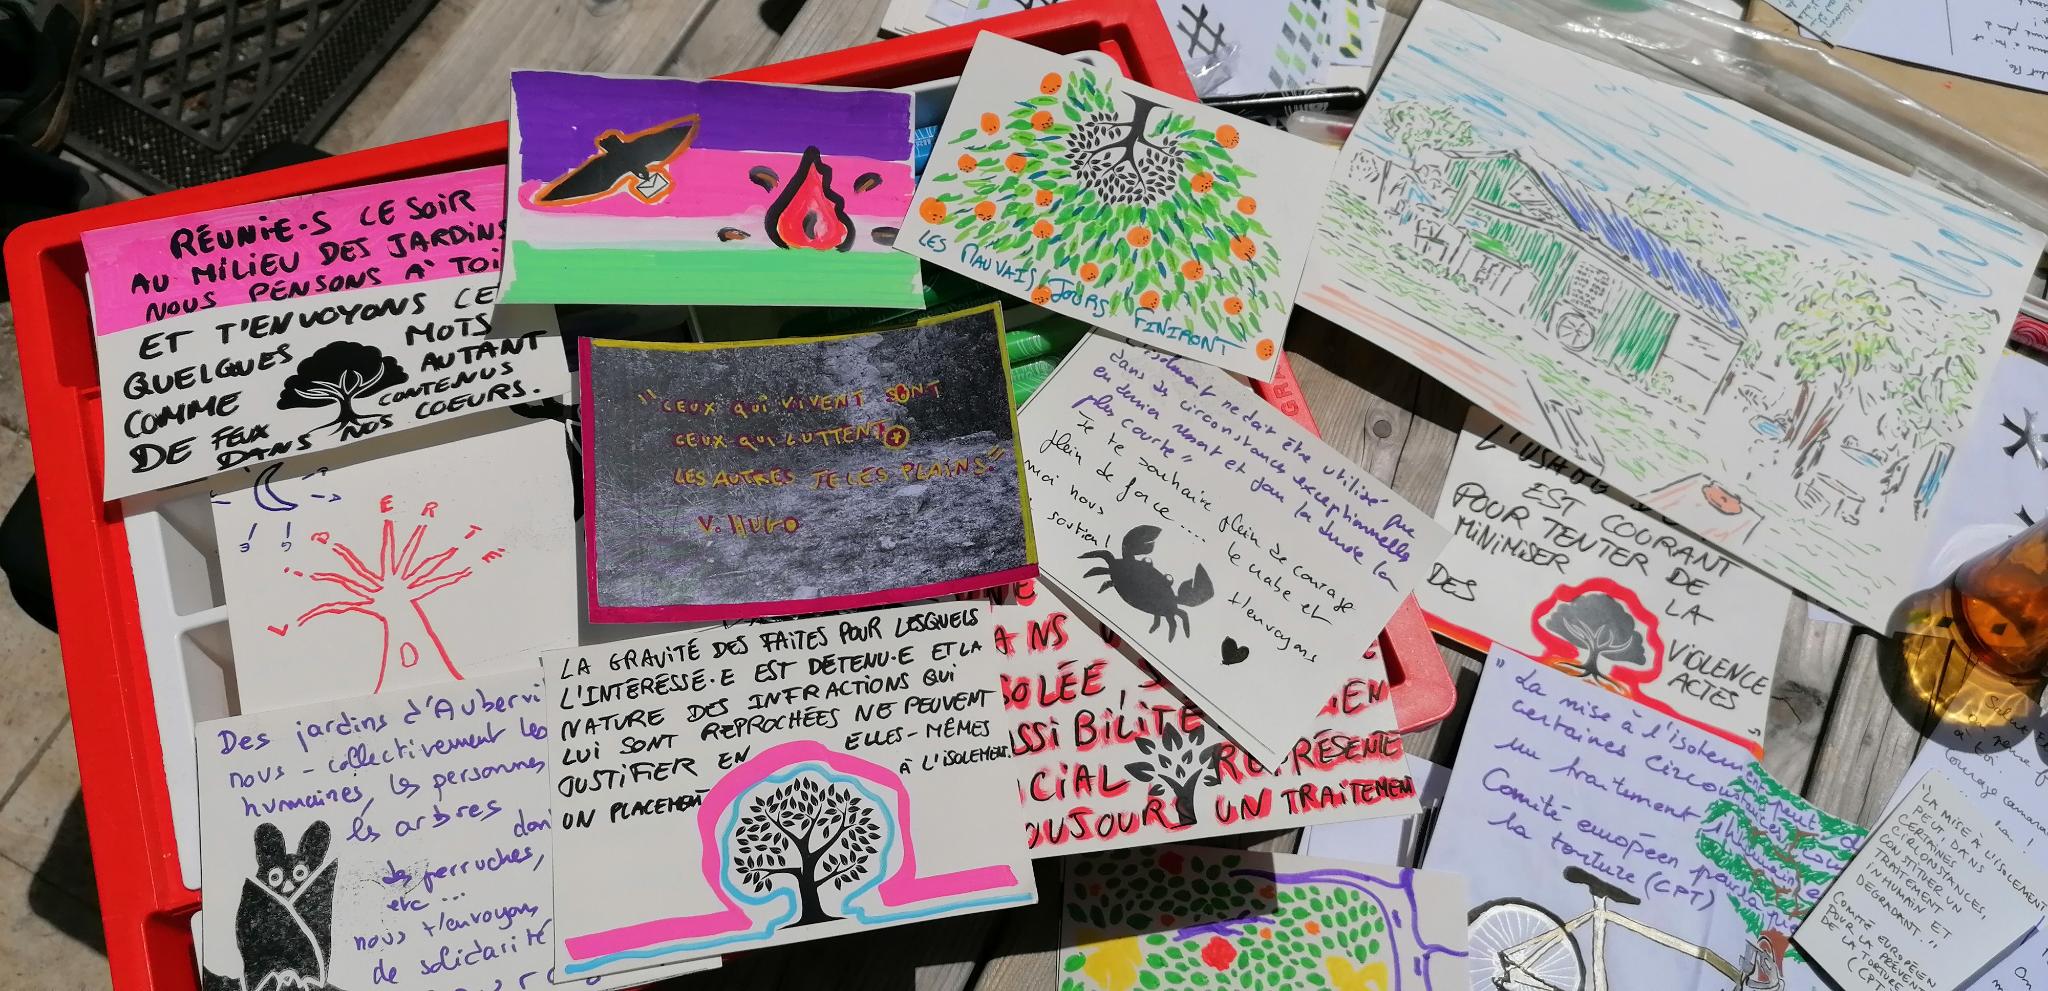 RÉUNIE·S CE SOIR
AU MILIEU DES JARDINS
NOUS PENSONS À TOI
ET T'ENVOYONS CE
QUELQUES MOTS
COMME AUTANT
DE FEUX CONTENUS
DANS NOS COEURS.
LES MAUVAIS JOURS FINIRONT
"CEUX QUI VIVENT SONT
CEUX QUI LUTTENT
LES AUTRES JE LES PLAINS."
V. HUGO
L I B E R T É
ne doit être utilisé que
dans des circonstances exceptionnelles
en dernier ressort et pour la durée la
plus courte"
Je te souhaite plein de courage
plein de force... le crabe et
moi nous t'envoyons
soutien!
EST COURANT
POUR TENTER DE
MINIMISER LA
DES VIOLENCE
ACTES
Des jardins d'Aubervi
nous - collectivement les
humaines, les personnes
les arbres dont
des perruches,
etc...
nous t'envoyons
de solidarité
LA GRAVITÉ DES FAITES POUR LESQUELS
L'INTÉRESSÉ·E EST DÉTENU·E ET LA
NATURE DES INFRACTIONS QUI
LUI SONT REPROCHÉES NE PEUVENT
JUSTIFIER EN ELLES-MÊMES
UN PLACEMENT À L'ISOLEMENT.
ANS
SOLÉE,
SSIBILITÉ
CIAL REPRÉSENTE
OUJOURS UN TRAITEMENT
"La mise à l'isolement peut dans
certaines circonstances
un traitement inhumain e
Comité européen pour la
la torture (CPT)
"LA MISE À L'ISOLEMENT
PEUT DANS
CERTAINES
CIRCONSTANCES,
CONSTITUER UN
TRAITEMENT
INHUMAIN ET
DÉGRADANT."
COMITÉ EUROPÉEN
POUR LA PRÉVE
DE LA TORTURE
(CPT